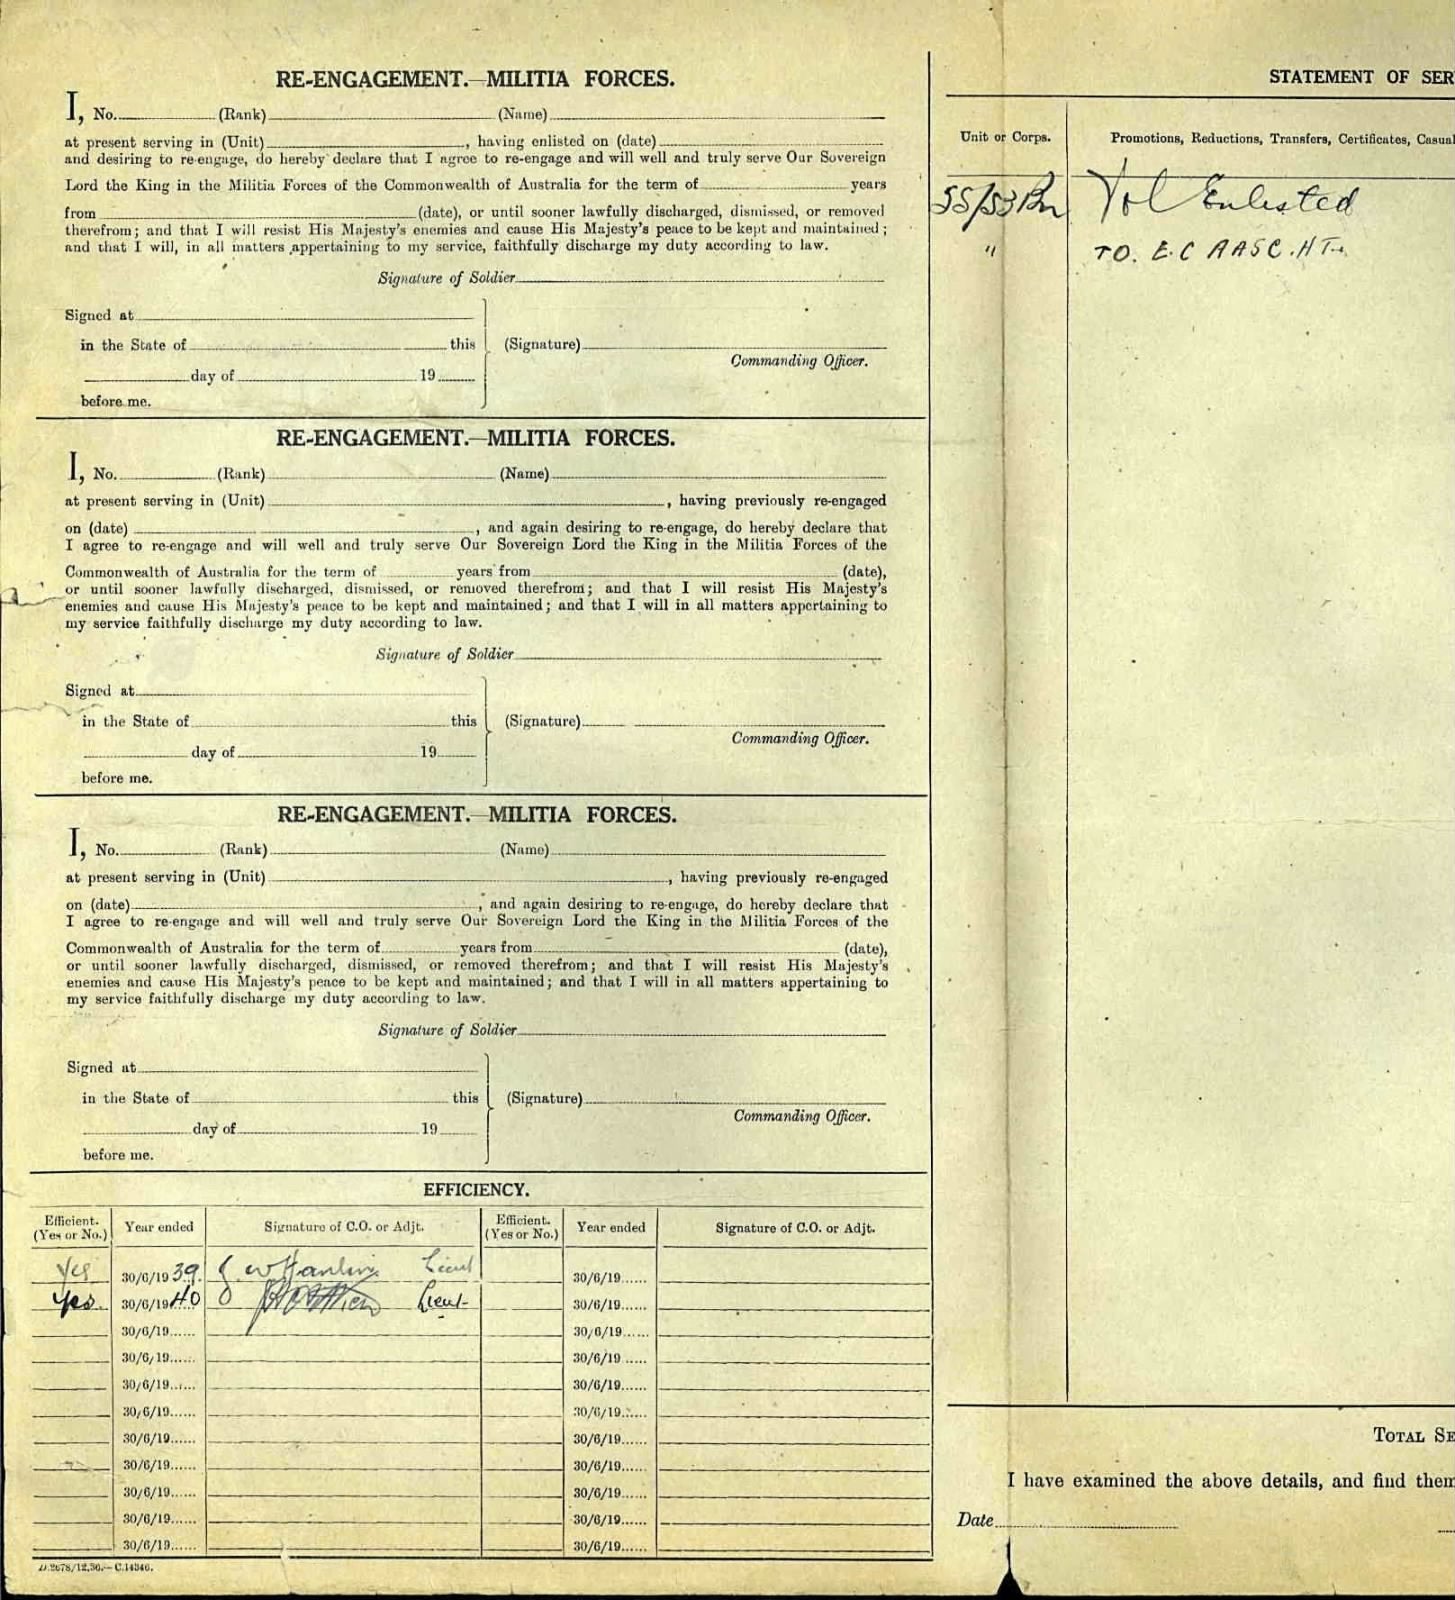 RE-ENGAGEMENT.—MILITIA FORCES.
I, No. (Rank) (Name)
at present serving in (Unit) , having enlisted on (date)
and desiring to re-engage, do hereby declare that I agree to re-engage and will well and truly serve Our Sovereign
Lord the King in the Militia Forces of the Commonwealth of Australia for the term of years
from (date), or until sooner lawfully discharged, dismissed, or removed
therefrom; and that I will resist His Majesty's enemies and cause His Majesty's peace to be kept and maintained;
and that I will, in all matters appertaining to my service, faithfully discharge my duty according to law.
Signature of Soldier
Signed at
in the State of this (Signature)
Commanding Officer.
day of 19
before me.
RE-ENGAGEMENT.—MILITIA FORCES.
I, No. (Rank) (Name)
at present serving in (Unit) , having previously re-engaged
on (date) , and again desiring to re-engage, do hereby declare that
I agree to re-engage and will well and truly serve Our Sovereign Lord the King in the Militia Forces of the
Commonwealth of Australia for the term of years from (date),
or until sooner lawfully discharged, dismissed, or removed therefrom; and that I will resist His Majesty's
enemies and cause His Majesty's peace to be kept and maintained; and that I will in all matters appertaining to
my service faithfully discharge my duty according to law.
Signature of Soldier
Signed at
in the State of this (Signature)
Commanding Officer.
day of 19
before me.
RE-ENGAGEMENT.—MILITIA FORCES.
I, No. (Rank) (Name)
at present serving in (Unit) , having previously re-engaged
on (date) , and again desiring to re-engage, do hereby declare that
I agree to re-engage and will well and truly serve Our Sovereign Lord the King in the Militia Forces of the
Commonwealth of Australia for the term of years from (date),
or until sooner lawfully discharged, dismissed, or removed therefrom; and that I will resist His Majesty's
enemies and cause His Majesty's peace to be kept and maintained; and that I will in all matters appertaining to
my service faithfully discharge my duty according to law.
Signature of Soldier
Signed at
in the State of this (Signature)
Commanding Officer.
day of 19
before me.
EFFICIENCY.
Efficient. (Yes or No.) Year ended Signature of C.O. or Adjt. Efficient. (Yes or No.) Year ended Signature of C.O. or Adjt.
Yes 30/6/1939. Lieut 30/6/19......
Yes. 30/6/1940 Lieut- 30/6/19......
30/6/19...... 30/6/19......
30/6/19...... 30/6/19......
30/6/19...... 30/6/19......
30/6/19...... 30/6/19......
30/6/19...... 30/6/19......
30/6/19...... 30/6/19......
30/6/19...... 30/6/19......
30/6/19...... 30/6/19......
30/6/19...... 30/6/19......
D.2678/12.36.—C.14346.
STATEMENT OF SER
Unit or Corps. Promotions, Reductions, Transfers, Certificates, Casual
55/53 Bn Vol Enlisted
" TO. E.C AASC.
TOTAL SE
I have examined the above details, and find them
Date